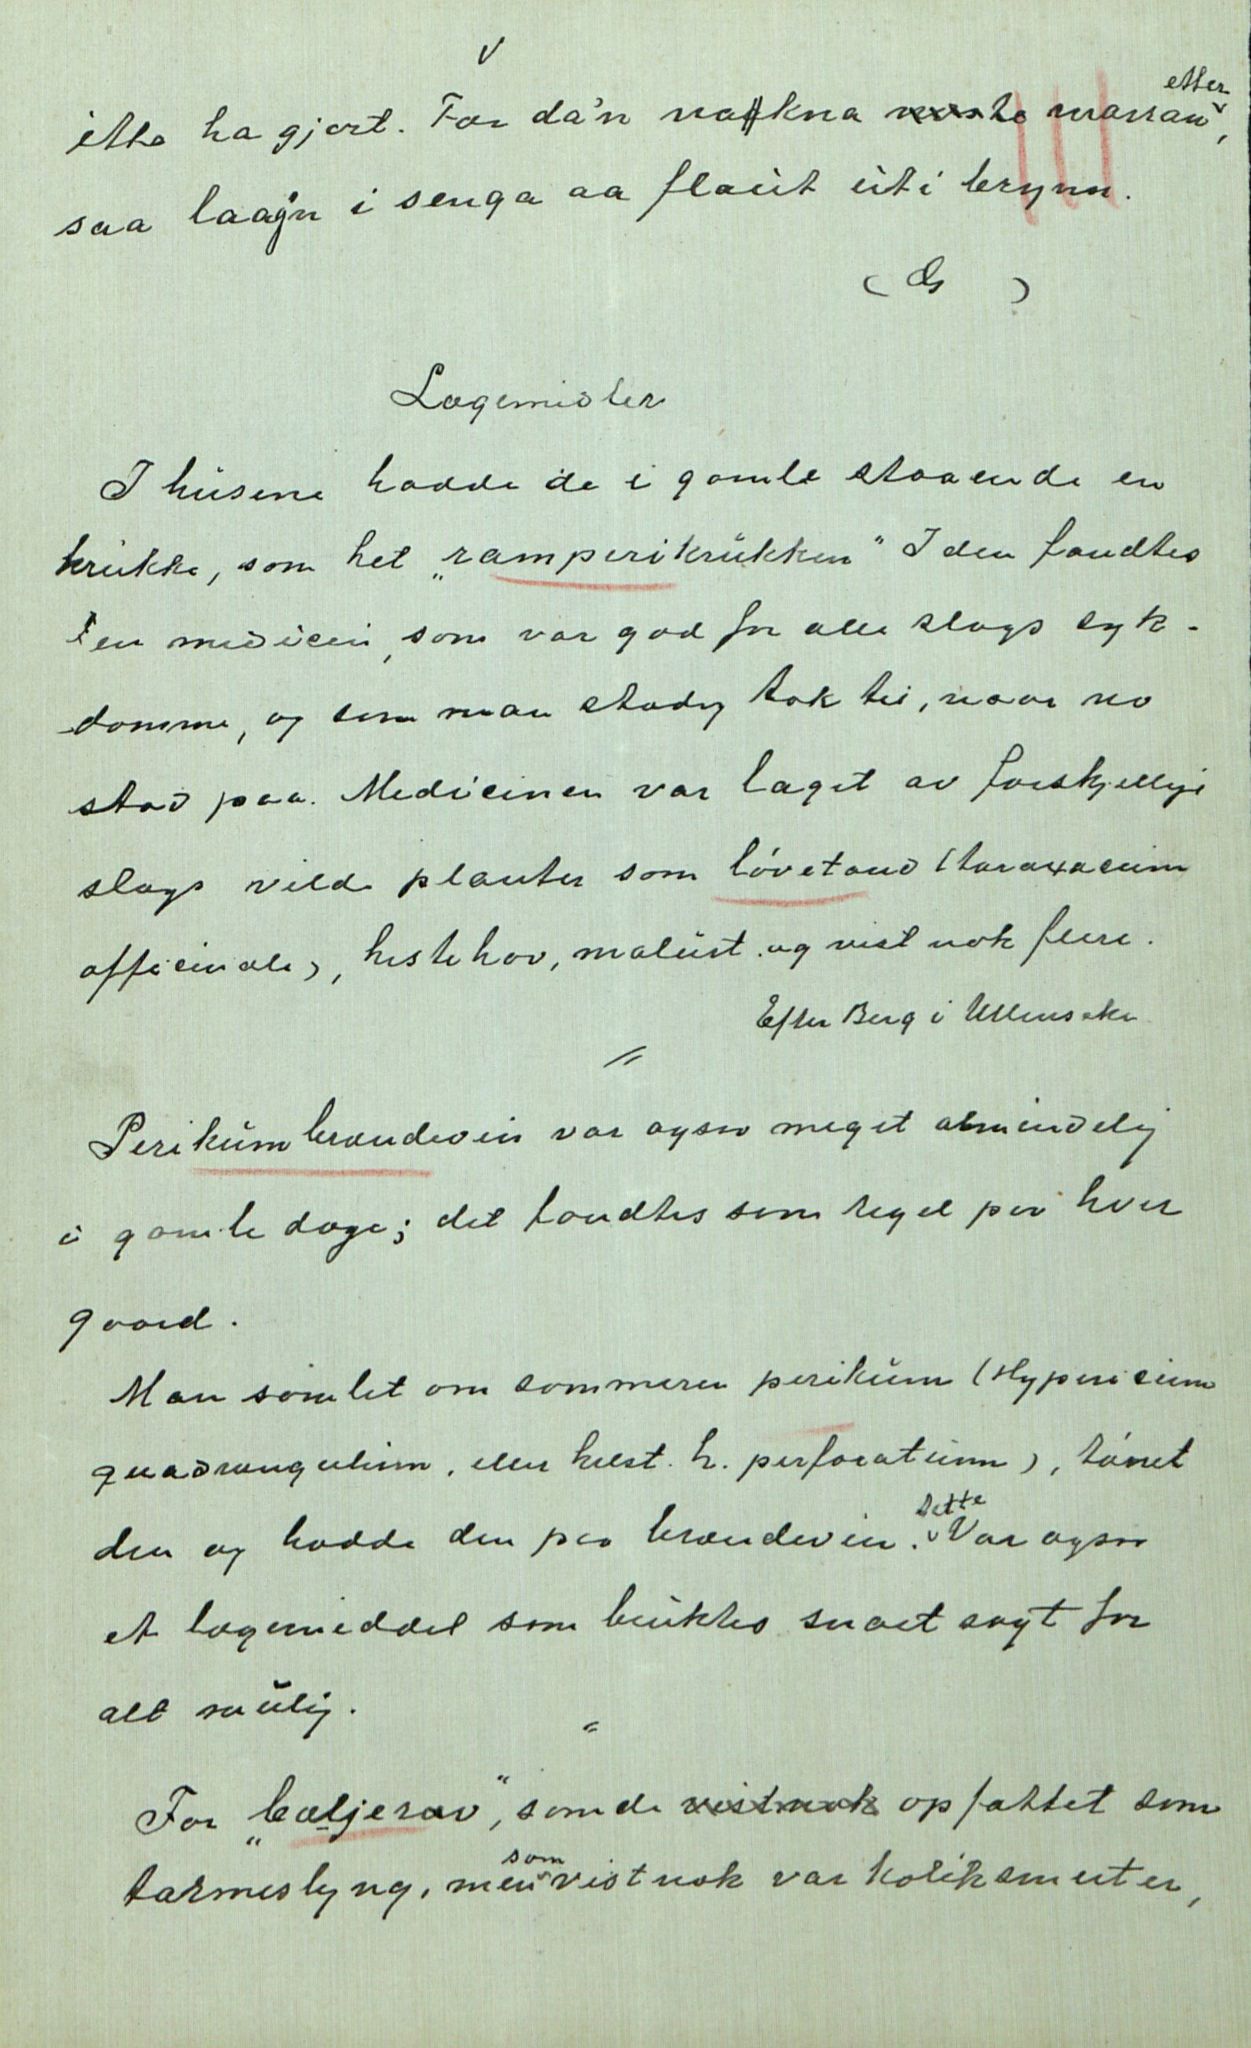 V
itte ha gjort. For da'n vakna neste marran etter,
saa laag'n i senga aa flaut uti brynn.
( G )
Lægemidler
I husene hadde de i gamle staaende en
krukke, som het „ramperikrukken“ I den fandtes
en medicin, som var god for alle slags syk-
domme, og som man stadig tok til, naar no
stod paa. Medicinen var laget av forskjellige
slags vilde planter som løvetand (taraxacum
officinale), hestehov, malurt og vist nok flere.
Efter Berg i Ullensaker
〃
Perikumbrændevin var ogsaa meget almindelig
i gamle dage; det fandtes som regel paa hver
gaard.
Man samlet om sommeren perikum (Hypericum
quadrangulum, eller helst h. perforatum), tørret
den og hadde den paa brændevin. Dette Var ogsaa
et lægemiddel som bruktes snart sagt for
alt mulig.
〃
For „bæljerav“, som de vistnok opfattet som
tarmeslyng, men som vistnok var koliksmerter,